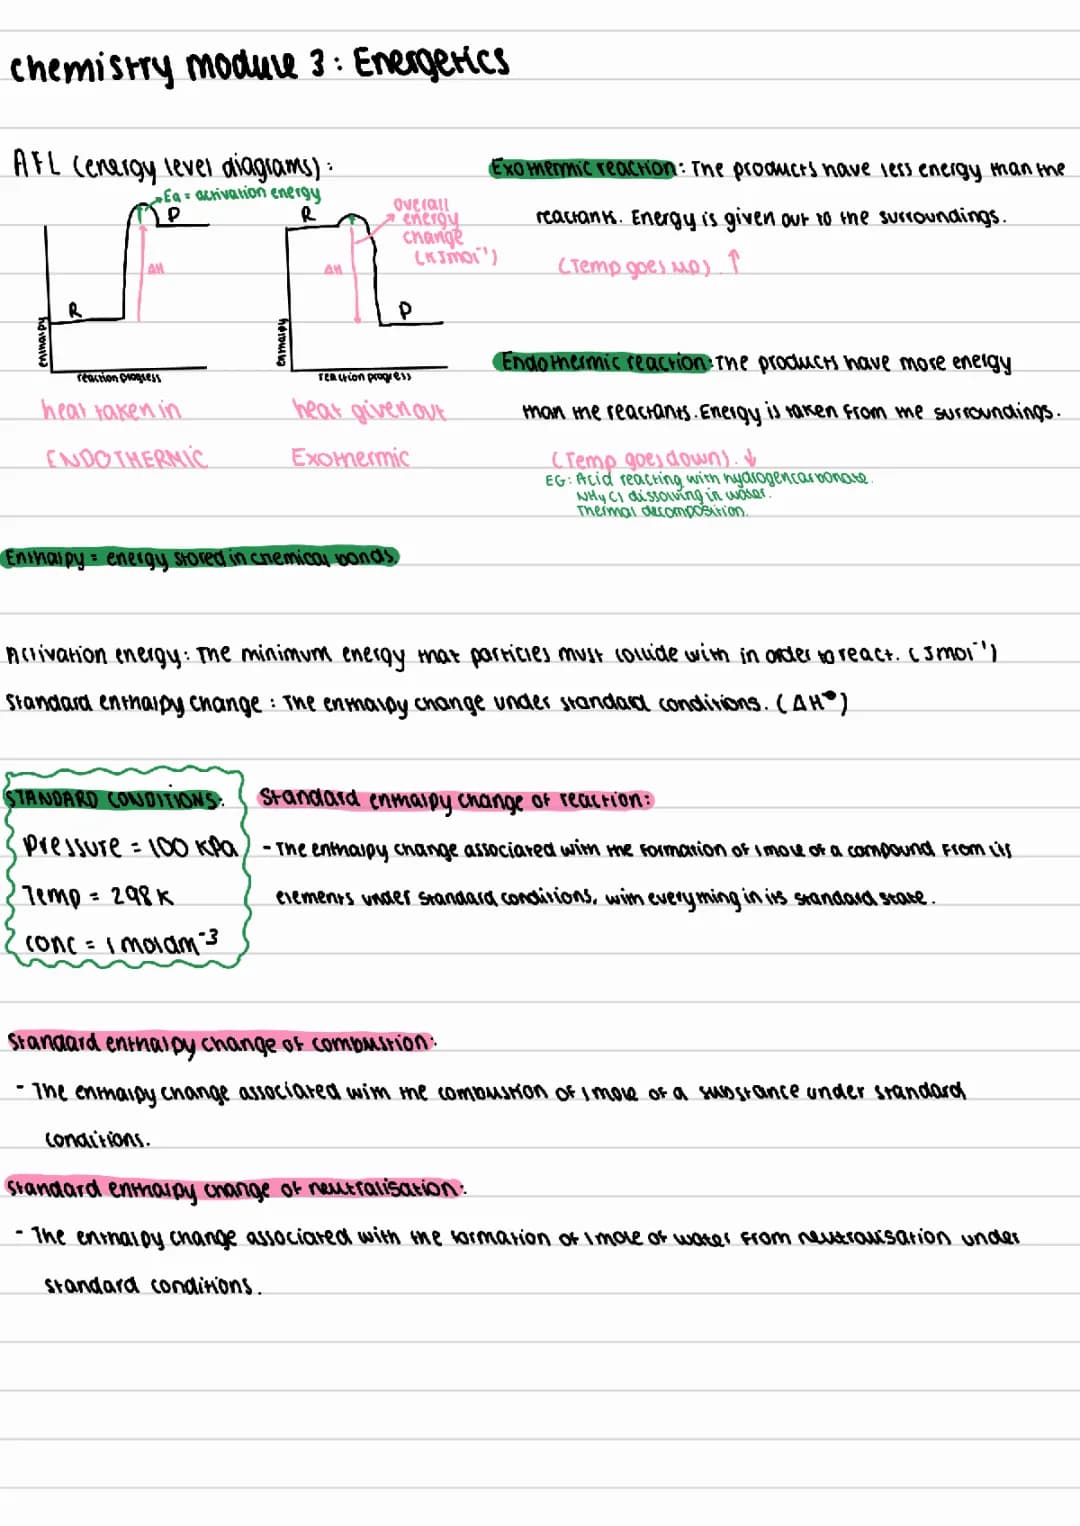 chemistry module 3: Energetics
AFL (energy level diagrams):
Ea = activation energy
P
ΔH
R
enthalpy
reaction progress
heat taken in
ENDOTHERMIC
R
overall
energy
change
(KJmol⁻¹)
ΔH
P
enthalpy
reaction progress
heat given out
Exothermic
Exothermic reaction: The products have less energy than the
reactants. Energy is given out to the surroundings.
(Temp goes up). ↑
Endothermic reaction: The products have more energy
than the reactants. Energy is taken from the surroundings.
(Temp goes down). ↓
EG: Acid reacting with hydrogencarbonate.
NH4Cl dissolving in water.
Thermal decomposition.
Enthalpy = energy stored in chemical bonds.
Activation energy: The minimum energy that particles must collide with in order to react. (Jmol⁻¹)
Standard enthalpy change: The enthalpy change under standard conditions. (ΔH⦵)
STANDARD CONDITIONS:
Pressure = 100 KPa
Temp = 298 K
conc = 1 moldm⁻³
Standard enthalpy change of reaction:
- The enthalpy change associated with the formation of 1 mole of a compound from its
elements under standard conditions, with everything in its standard state.
Standard enthalpy change of combustion:
- The enthalpy change associated with the combustion of 1 mole of a substance under standard
conditions.
Standard enthalpy change of neutralisation:
- The enthalpy change associated with the formation of 1 mole of water from neutralisation under
standard conditions.